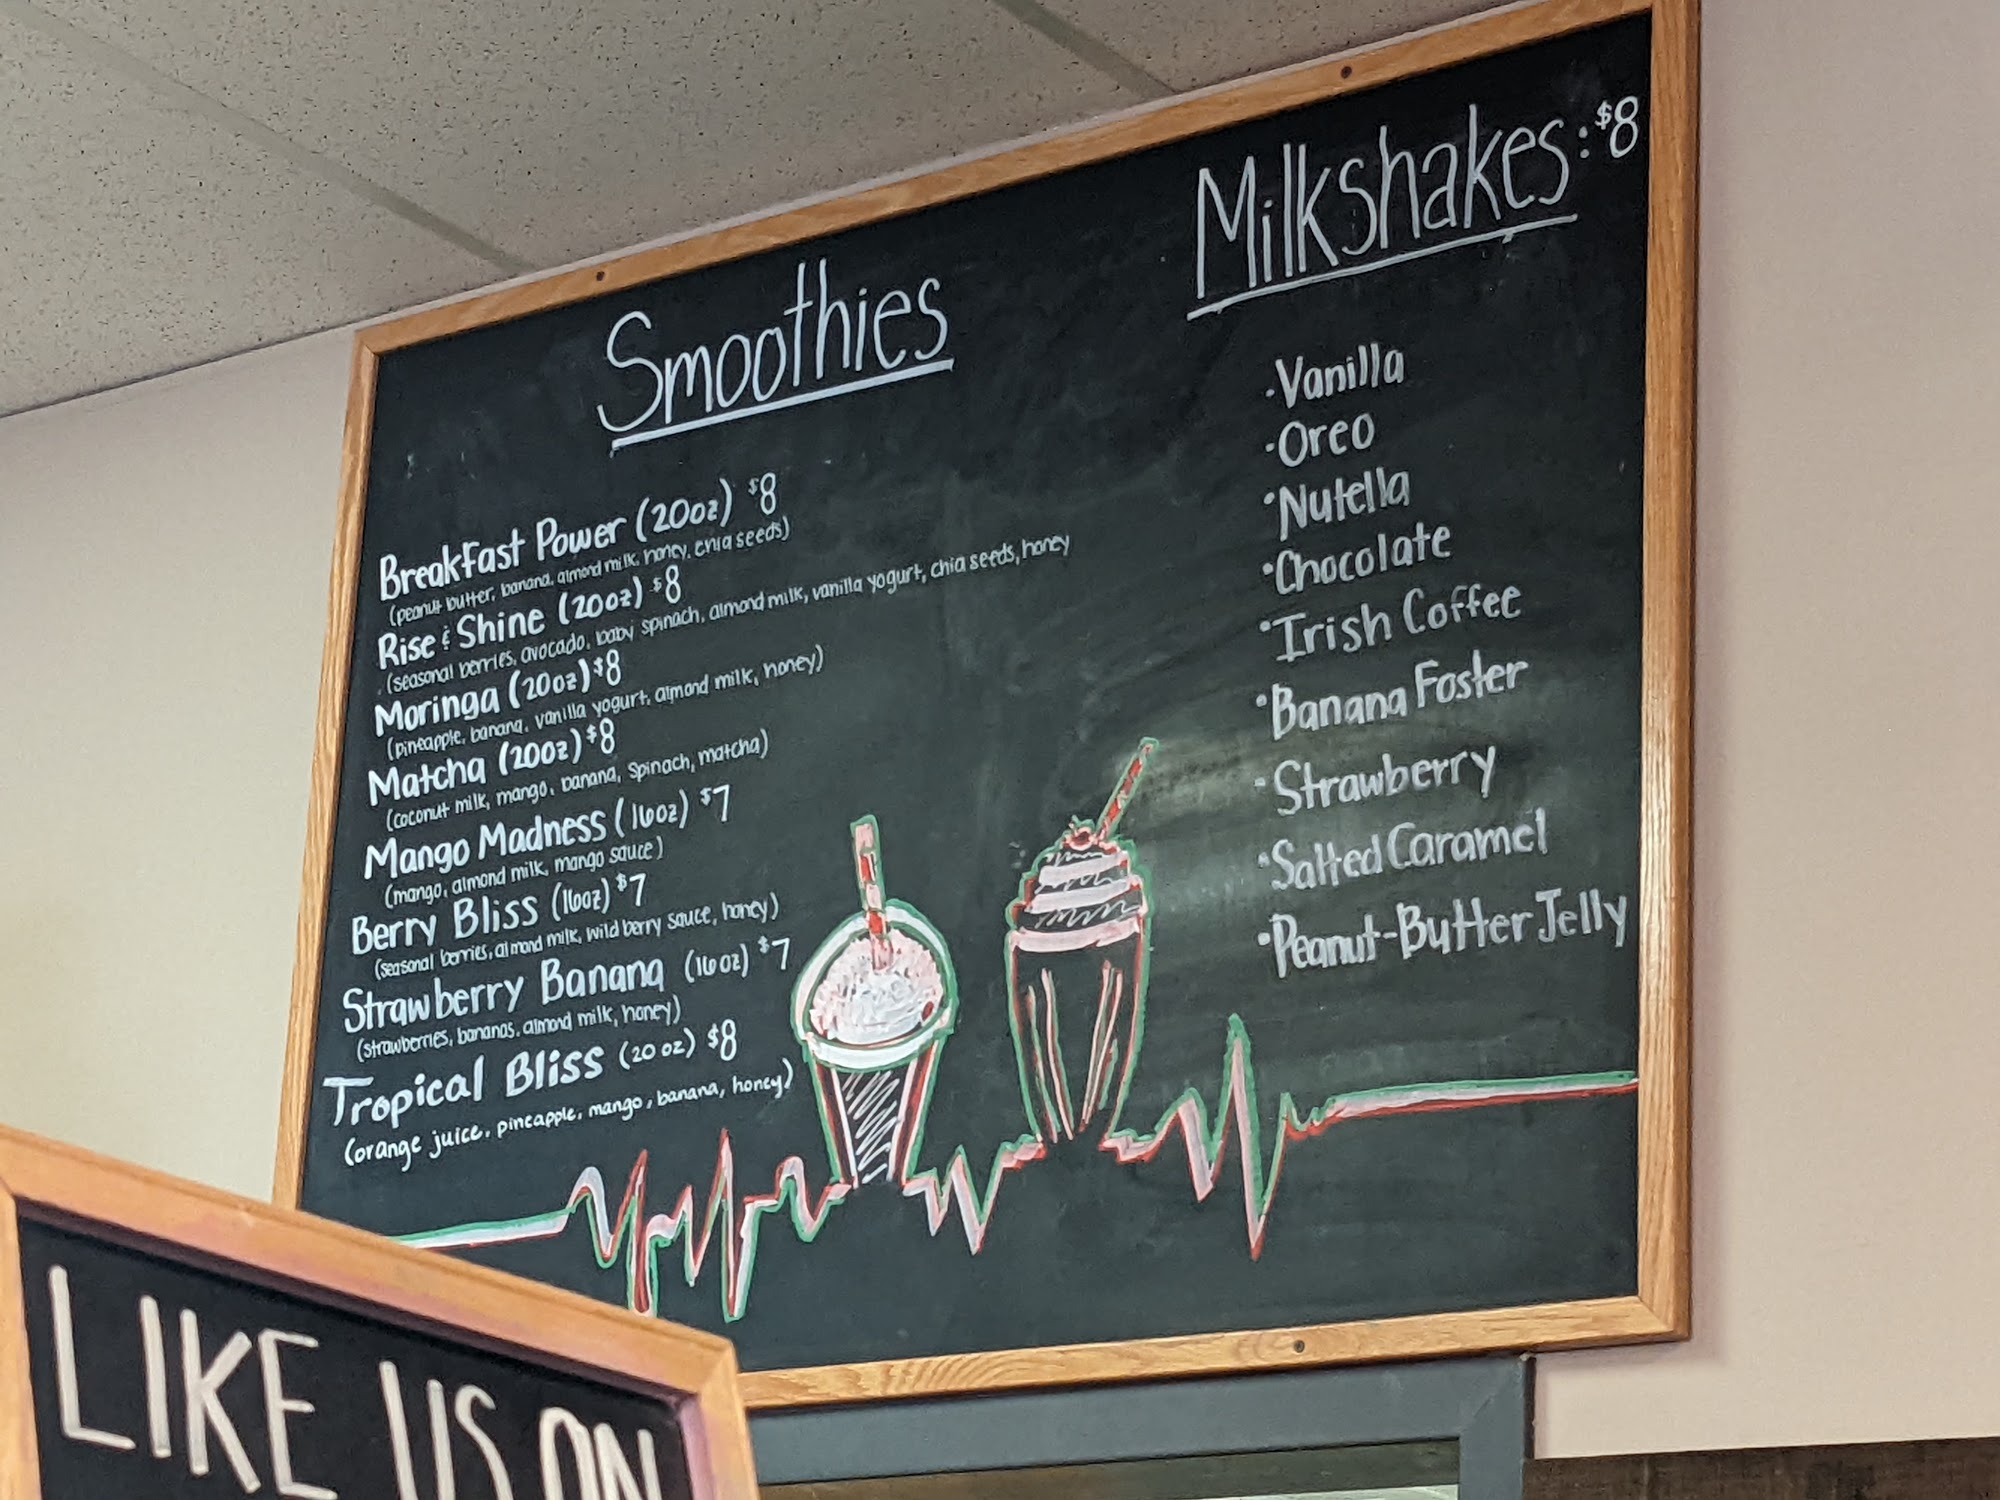 Smoothies
Breakfast Power (20oz) $8
(peanut butter, banana, almond milk, honey, chia seeds)
Rise & Shine (20oz) $8
(seasonal berries, avocado, baby spinach, almond milk, vanilla yogurt, chia seeds, honey
Moringa (20oz) $8
(pineapple, banana, vanilla yogurt, almond milk, honey)
Matcha (20oz) $8
(coconut milk, mango, banana, spinach, matcha)
Mango Madness (16oz) $7
(mango, almond milk, mango sauce)
Berry Bliss (16oz) $7
(seasonal berries, almond milk, wild berry sauce, honey)
Strawberry Banana (16oz) $7
(strawberries, bananas, almond milk, honey)
Tropical Bliss (20oz) $8
(orange juice, pineapple, mango, banana, honey)
Milkshakes: $8
·Vanilla
·Oreo
·Nutella
·Chocolate
·Irish Coffee
·Banana Foster
·Strawberry
·Salted Caramel
·Peanut-Butter Jelly
LIKE US ON